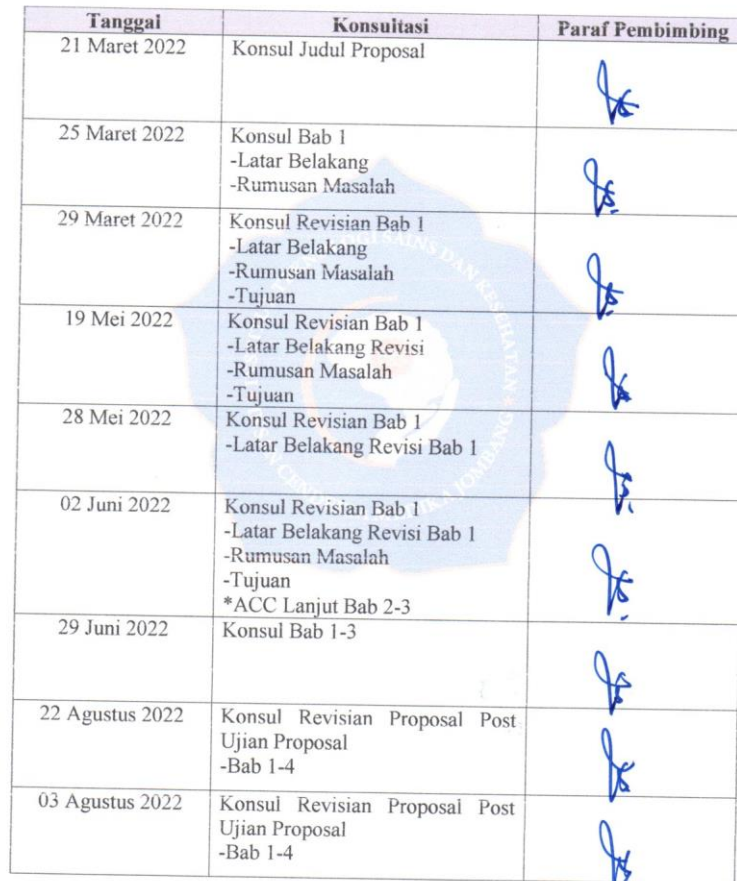 Tanggal Konsultasi Paraf Pembimbing
21 Maret 2022 Konsul Judul Proposal
25 Maret 2022 Konsul Bab 1
-Latar Belakang
-Rumusan Masalah
29 Maret 2022 Konsul Revisian Bab 1
-Latar Belakang
-Rumusan Masalah
-Tujuan
19 Mei 2022 Konsul Revisian Bab 1
-Latar Belakang Revisi
-Rumusan Masalah
-Tujuan
28 Mei 2022 Konsul Revisian Bab 1
-Latar Belakang Revisi Bab 1
02 Juni 2022 Konsul Revisian Bab 1
-Latar Belakang Revisi Bab 1
-Rumusan Masalah
-Tujuan
*ACC Lanjut Bab 2-3
29 Juni 2022 Konsul Bab 1-3
22 Agustus 2022 Konsul Revisian Proposal Post
Ujian Proposal
-Bab 1-4
03 Agustus 2022 Konsul Revisian Proposal Post
Ujian Proposal
-Bab 1-4
SAINS DAN KESEHATAN
JOMBANG